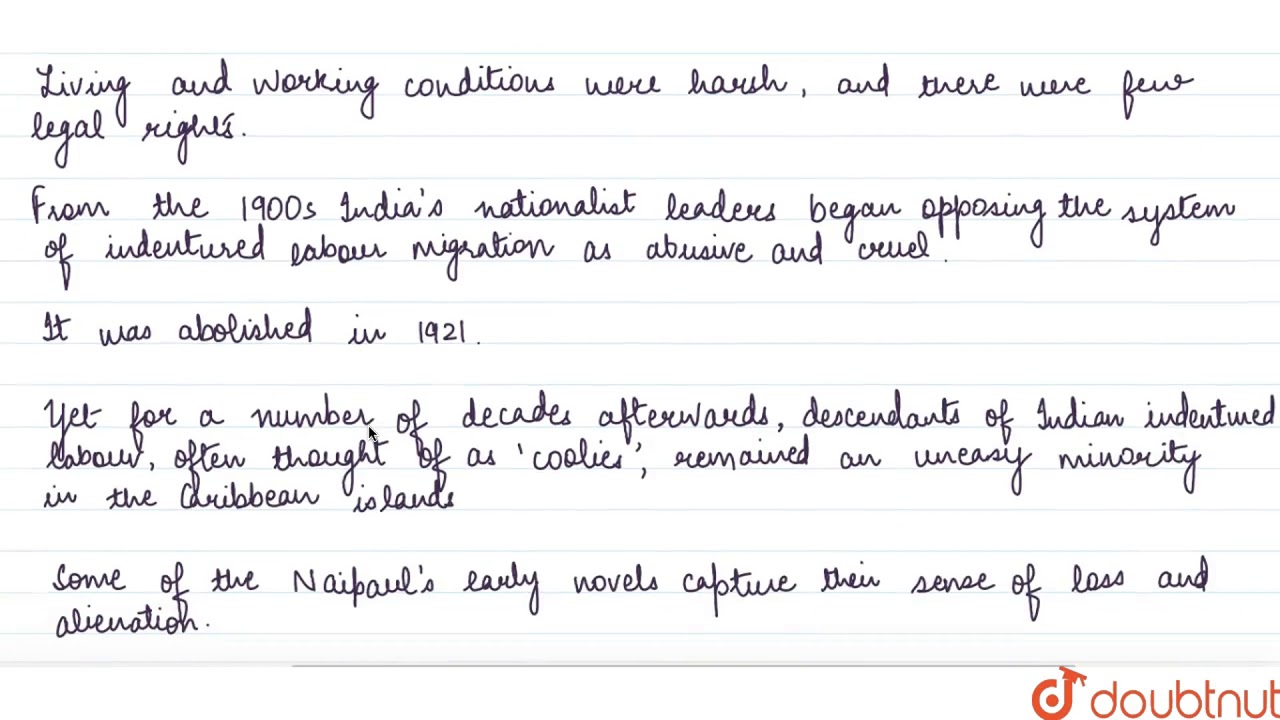 Living and working conditions were harsh, and there were few
legal rights.
From the 1900s India's nationalist leaders began opposing the system
of indentured labour migration as abusive and cruel.
It was abolished in 1921.
Yet for a number of decades afterwards, descendants of Indian indentured
labour, often thought of as 'coolies', remained an uneasy minority
in the Caribbean islands
Some of the Naipaul's early novels capture their sense of loss and
alienation.
doubtnut